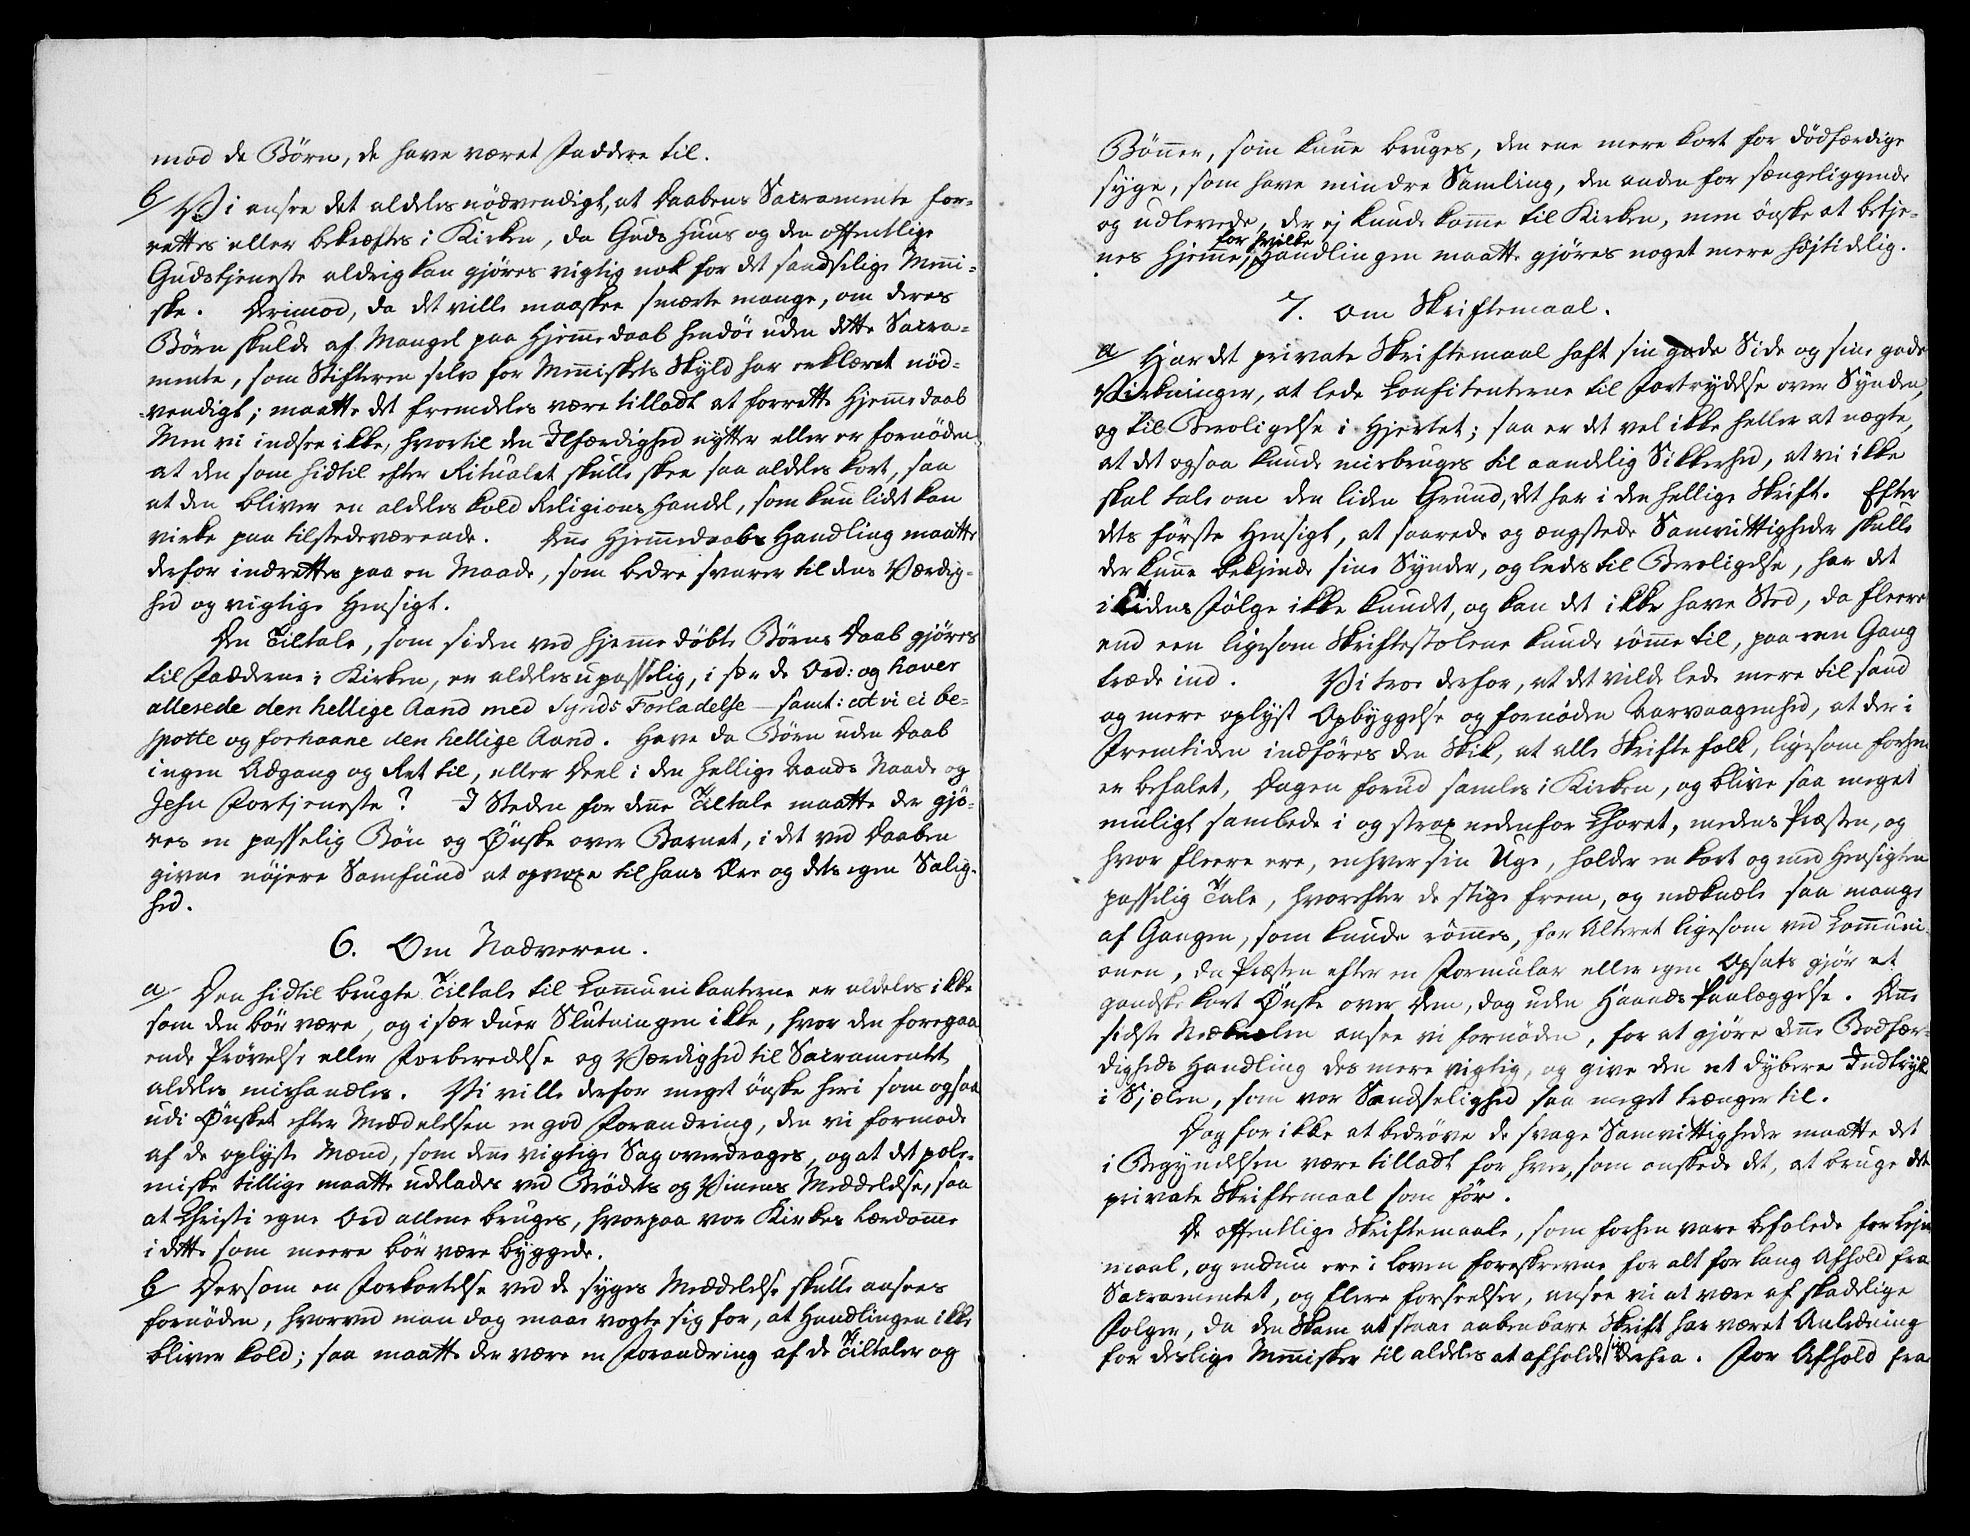 mod de Börn, de have været Faddere til.
b/ Vi ansee det aldeles nödvendigt, at Daabens Sacramente for-
rettes eller bekræftes i Kirken, da Guds Huus og den offentlige
Gudstjeneste aldrig kan gjöres vigtig nok for det sandselige Menni-
ske. Derimod, da det ville maaskee smerte mange, om deres
Börn skulde af Mangel paa Hjemmedaab hendöe uden dette Sacra-
mente, som Stifteren selv for Menniskets Skyld har erklæret nöd-
vendigt; maatte det fremdeles være tilladt at forrette Hjemmedaab
Men vi indsee ikke, hvortil den Ilfærdighed nytter eller er fornöden
at den som hidtil efter Ritualet skulle skee saa aldeles kort, saa
at den bliver en aldeles kold Religions Handel, som kun lidt kan
virke paa tilstedeværende. Denne Hjemmedaabs Handling maatte
derfor indrettes paa en Maade, som bedre svarer til dens Værdig-
hed og vigtige Hensigt.
Den Tiltale, som siden ved hjemmedöbte Börns Daab gjöres
til Fadderne i Kirken, er aldeles upasselig, i sær de Ord: og haver
allerede den hellige Aand med Synds Forladelse — samt: at vi ei be-
spotte og forhaane den hellige Aand. Have da Börn uden Daab
ingen Adgang og Ret til, eller Deel i den hellige Aands Naade og
Jesu Fortjeneste? I Steden for denne Tiltale maatte der gjö-
res en passelig Bön og Önske over Barnet, i det ved Daaben
givne nöjere Samfund at opvoxe til hans Ære og dets egen Salig-
hed.
6. Om Nadveren.
a/ Den hidtil brugte Tiltale til Communikanterne er aldeles ikke
som den bör være, og især duer Slutningen ikke, hvor den foregaa
ende Prövelse eller Forberedelse og Værdighed til Sacramentet
aldeles mishandles. Vi ville derfor meget önske heri som ogsaa
udi Önsket efter Meddelelsen en god Forandring, den vi formode
af de oplyste Mænd, som denne vigtige Sag overdrages, og at det pole-
miske tillige maatte udelades ved Brödets og Vinens Meddelelse, saa
at Christi egne Ord allene bruges, hvorpaa vor Kirkes Lærdomme
i dette som meere bör være byggede.
b/ Dersom en Forkortelse ved de syges Meddelelse skulle ansees
fornöden, hvorved man dog maae vogte sig for, at Handlingen ikke
bliver kold; saa maatte der være en Forandring af de Tiltaler og
Bönner, som kunne bruges, den ene mere kort for dödfærdige
syge, som have mindre Samling, den anden for sængeliggende
og udlevede, der ej kunde komme til Kirken, men önske at betje-
nes hjemme, for hvilke Handlingen maatte gjöres noget mere höjtidelig.
7. Om Skriftemaal.
a/ Har det private Skriftemaal haft sin gode Side og sine gode
Virkninger, at lede Confitenterne til Fortrydelse over Synden,
og til Beroligelse i Hjertet; saa er det vel ikke heller at nægte,
at det ogsaa kunde misbruges til aandelig Sikkerhed, at vi ikke
skal tale om den liden Grund, det har i den hellige Skrift. Efter
dets förste Hensigt, at saarede og ængstede Samvittigheder skulle
der kunne bekjende sine Synder, og ledes til Beroligelse, har det
i Tidens Fölge ikke kundet, og kan det ikke have Sted, da fleere
end een ligesom Skriftestolene kunde römme til, paa een Gang
træde ind. Vi troe derfor, at det vilde lede mere til sand
og mere oplyst Opbyggelse og fornöden Aarvaagenhed, at der i
Fremtiden indföres den Skik, at alle Skriftefolk, ligesom forhen
er befalet, Dagen forud samles i Kirken, og blive saa meget
muligt samlede i og strax nedenfor Choret, medens Præsten, og
hvor fleere ere, enhver sin Uge, holder en kort og med Hensigten
passelig Tale, hvorefter de stige frem, og nedknæle saa mange
af Gangen, som kunde römmes, for Alteret ligesom ved Communi-
onen, da Præsten efter en Formular eller egen Opsats gjör et
gandske kort Önske over dem, dog uden Haands Paalæggelse. Denne
sidste Nedknælen ansee vi fornöden, for at gjöre denne Bodfær-
digheds Handling des mere vigtig, og give den et dybere Indtryk
i Sjælen, som vor Sandselighed saa meget trænger til.
Dog for ikke at bedröve de svage Samvittigheder maatte det
i Begyndelsen være tilladt for hver, som önskede det, at bruge det
private Skriftemaal som för.
De offentlige Skriftemaale, som forhen vare befalede for Leje
maal, og endnu ere i Loven foreskrevne for alt for lang Afhold fra
Sacramentet, og flere Forseelser, ansee vi at være af skadelige
Fölger, da den Skam at staae aabenbare Skrift har været Anledning
for deslige Mennisker til aldeles at afholde sig derfra. For Afhold fra